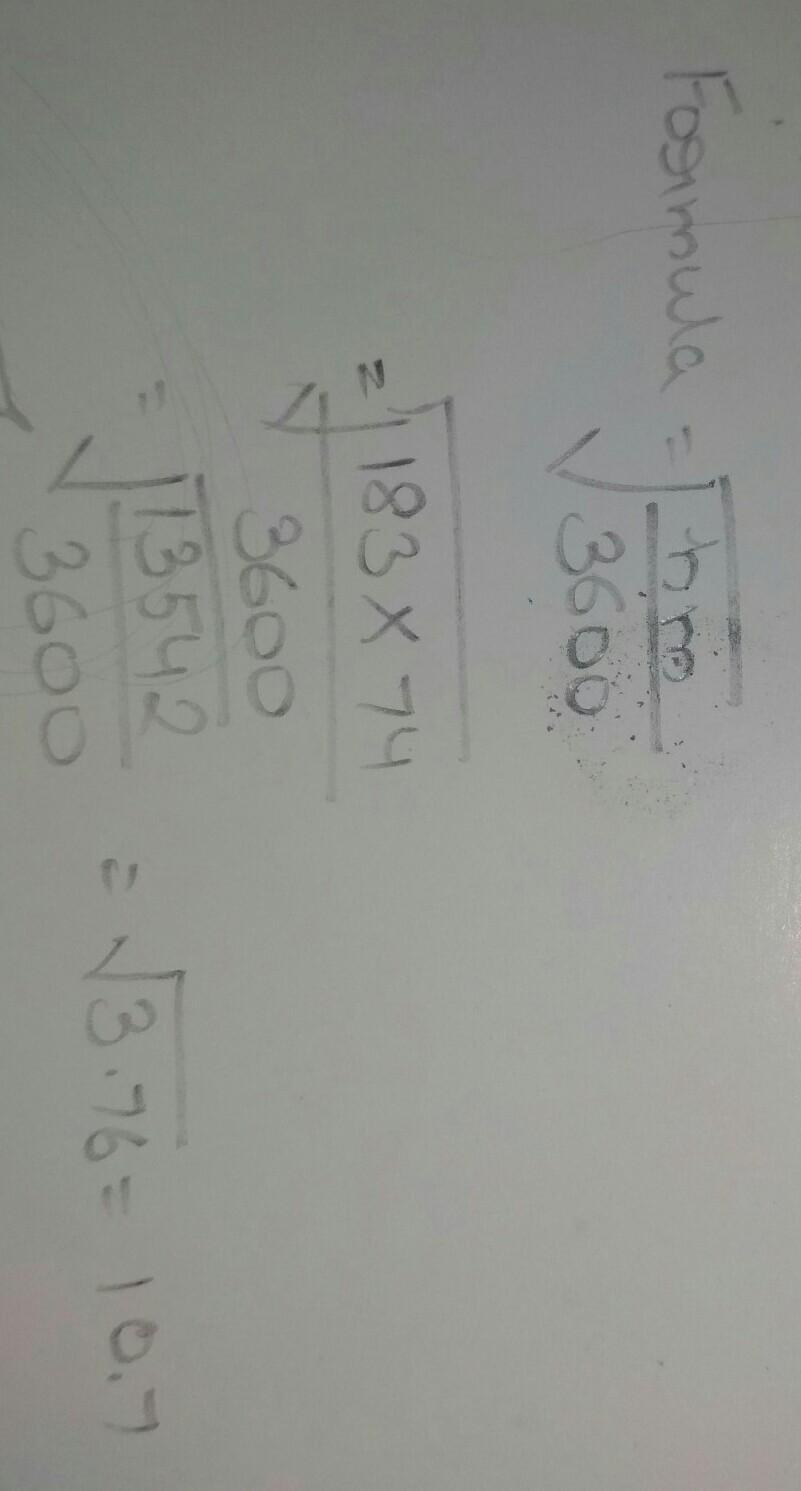 Formula = √hm/3600
= √183 x 74/3600
= √13542/3600 = √3.76 = 10.7